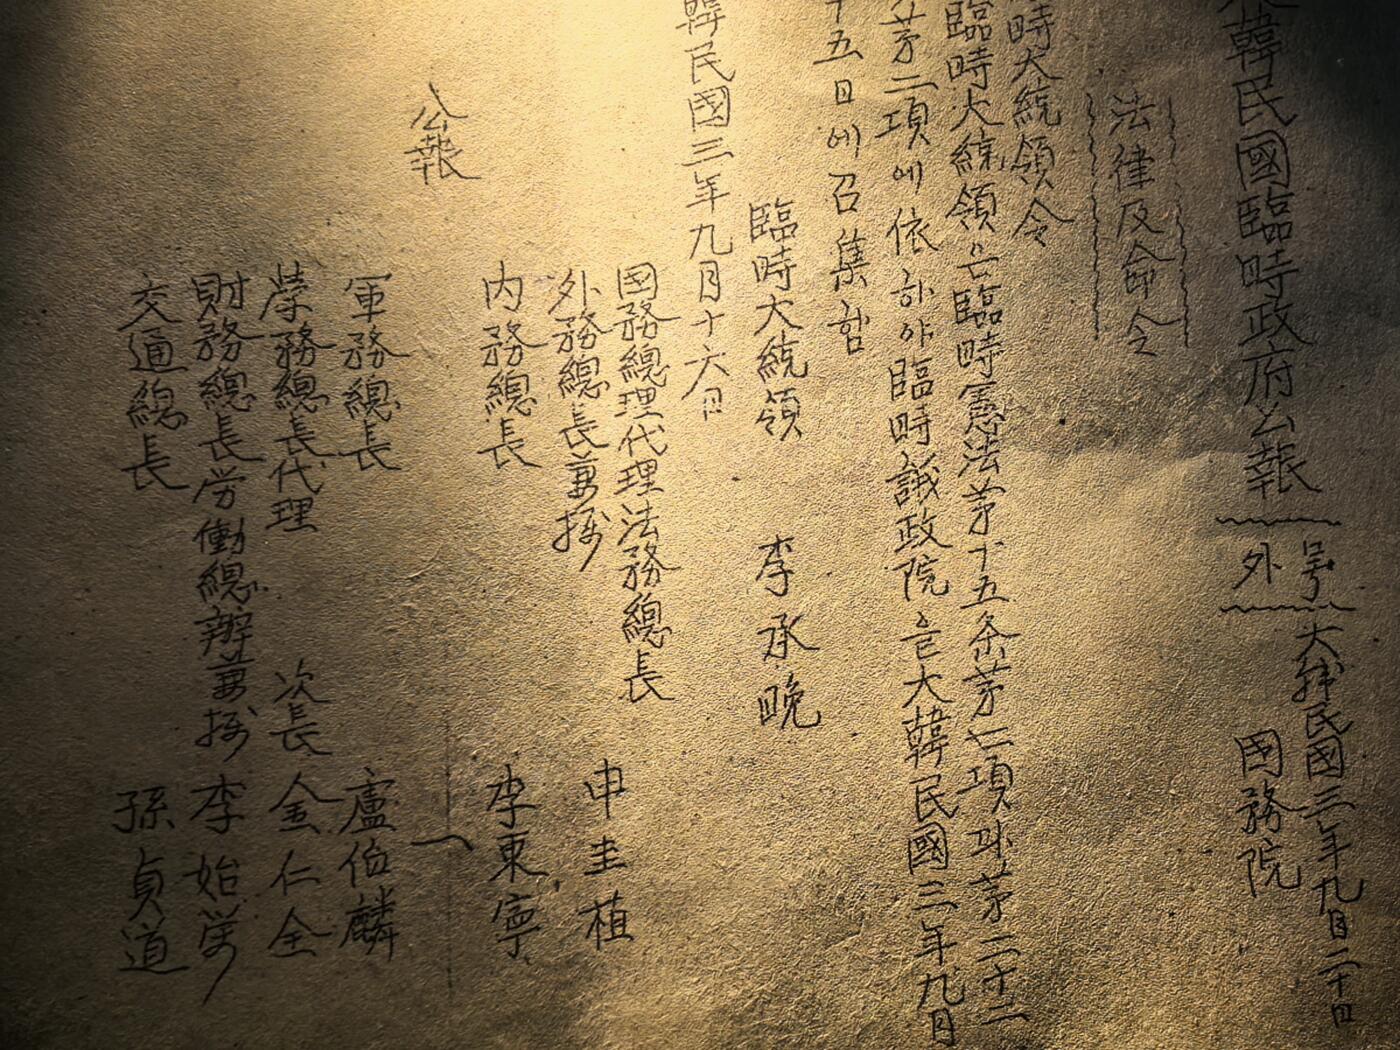 大韓民國臨時政府公報
號外
大韓民國三年九月二十日
國務院
法律及命令
時大統領令
臨時大統領은臨時憲法苐十五条苐七項및苐二十二
苐二項에依하야臨時議政院을大韓民國三年九月
十五日에召集함
臨時大統領 李承晩
韓民國三年九月十六日
国務總理代理法務總長 申圭植
外務總長兼摂
内務總長 李東寧
公報
一
軍務總長 盧伯麟
學務總長代理 次長 金仁全
財務總長労働總辦兼摂 李始榮
交通總長 孫貞道